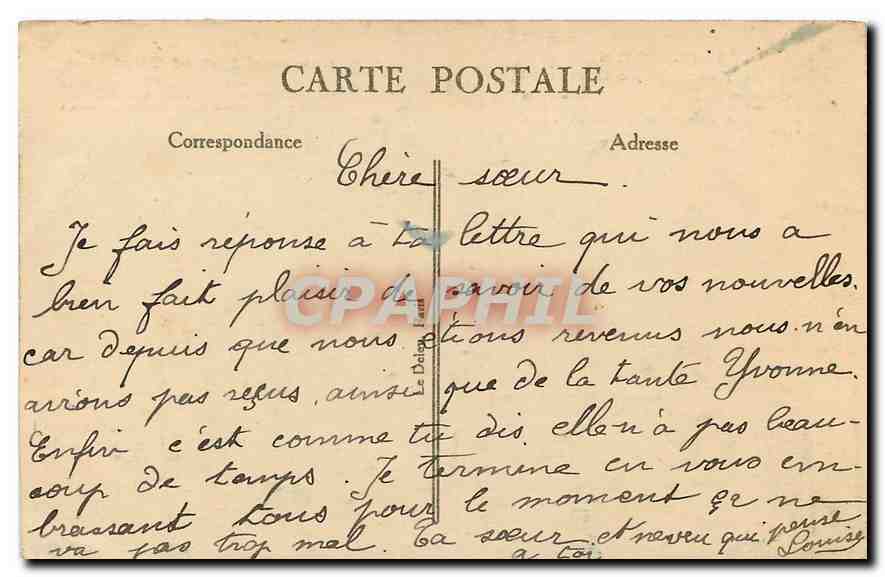 CARTE POSTALE
Correspondance
Adresse
Chère sœur.
Je fais réponse à ta lettre qui nous a
bien fait plaisir de savoir de vos nouvelles.
car depuis que nous étions revenus nous n'en
avions pas reçus, ainsi que de la tante Yvonne.
Enfin c'est comme tu dis elle n'a pas beau-
coup de temps. Je termine en vous em-
brassant tous pour le moment ça ne
va pas trop mal. Ta sœur et neveu qui pense
a toi
Louise
Le Deley, Paris
CPAPHIL